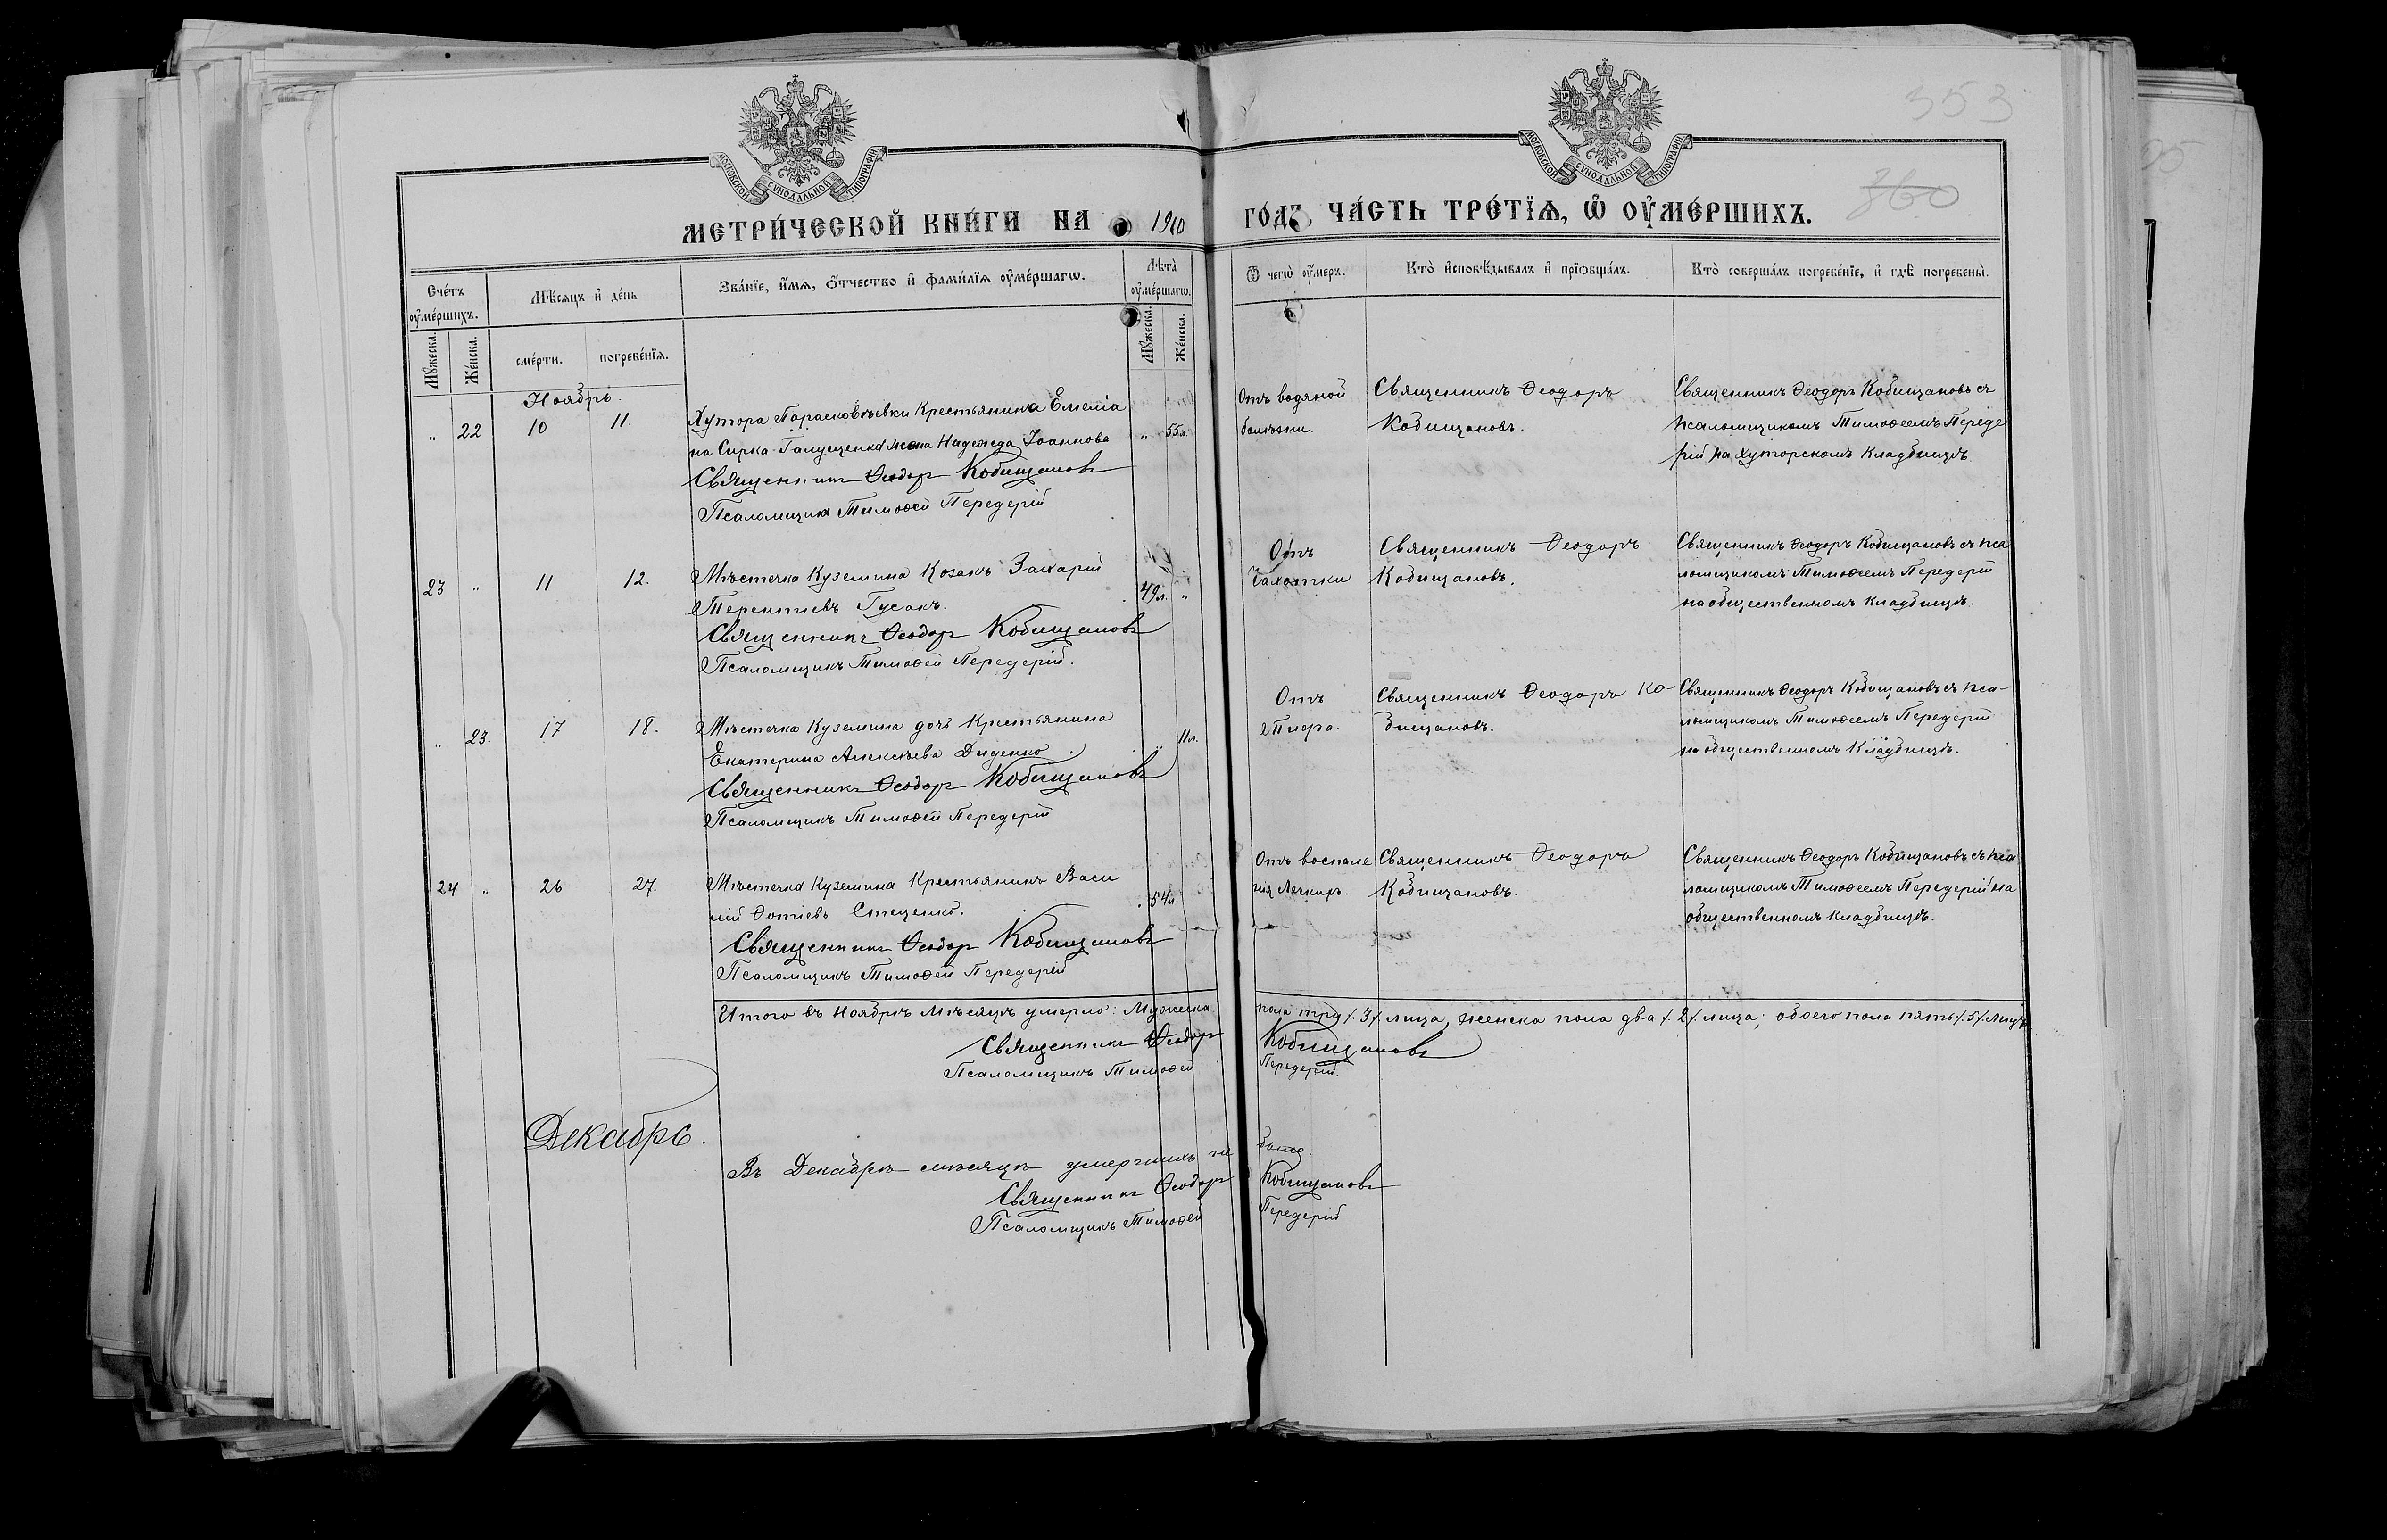 353
360
МОСКОВСКОЙ СУНОДАЛЬНОЙ ТИПОГРАФІИ
МОСКОВСКОЙ СУНОДАЛЬНОЙ ТИПОГРАФІИ
МЕТРИ́ЧЕСКОЙ КНИ́ГИ НА 1910 ГО́ДЪ, ЧА́СТЬ ТРЕ́ТІѦ, Ѡ ОУМЕ́РШИХЪ.
Сче́тъ оуме́ршихъ.
Мѣ́сяцъ и де́нь
Зва́нїе, и́мѧ, ѻ́тчество и фами́лїѧ оуме́ршагѡ.
Лѣта̀ оуме́ршагѡ.
Ѿ чегѡ̀ оу́меръ.
Кто̀ и҆сповѣ́дывалъ и прїѡбща́лъ.
Кто̀ соверша́лъ погребе́нїе, и гдѣ̀ погребены̀.
Му́жеска.
Же́нска.
сме́рти.
погребе́нїѧ.
Му́жеска.
Же́нска.
Ноябрь.
„ 22 10 11. Хутора Парасковѣевки Крестьянина Емелiа
на Сирка-Галущенка жена Надежда Iоаннова „ 55 л.
Священникъ Ѳеодоръ Кобищановъ
Псаломщикъ Тимоѳей Передерiй
Отъ водяной
болѣзни.
Священникъ Ѳеодоръ
Кобищановъ.
Священникъ Ѳеодоръ Кобищановъ съ
псаломщикомъ Тимоѳеемъ Переде
рiй на хуторскомъ кладбищѣ.
23 „ 11 12. Мѣстечка Куземина Козакъ Захарiй
Терентiевъ Гусакъ. 49 л. „
Священникъ Ѳеодоръ Кобищановъ
Псаломщикъ Тимоѳей Передерiй.
Отъ
Чахотки
Священникъ Ѳеодоръ
Кобищановъ.
Священникъ Ѳеодоръ Кобищановъ съ пса
ломщикомъ Тимоѳеемъ Передерiй
на общественномъ кладбищѣ.
„ 23. 17 18. Мѣстечка Куземина дочь крестьянина
Екатерина Алексѣева Диденко. „ 11 л.
Священникъ Ѳеодоръ Кобищановъ
Псаломщикъ Тимоѳей Передерiй
Отъ
Тифа.
Священникъ Ѳеодоръ Ко-
бищановъ.
Священникъ Ѳеодоръ Кобищановъ съ пса-
ломщикомъ Тимоѳеемъ Передерiй
на общественномъ кладбищѣ.
24 „ 26 27. Мѣстечка Куземина Крестьянинъ Васи
лiй Фотiевъ Стеценко. 54 л.
Священникъ Ѳеодоръ Кобищановъ
Псаломщикъ Тимоѳей Передерiй
Отъ воспале
нiя Легкихъ.
Священникъ Ѳеодоръ
Кобищановъ.
Священникъ Ѳеодоръ Кобищановъ съ пса
ломщикомъ Тимоѳеемъ Передерiй на
общественномъ кладбищѣ.
Итого въ Ноябрѣ мѣсяцѣ умерло: Мужеска пола три /.3/. лица, женска пола два /.2/. лица; обоего пола пять /.5/. лицъ
Священникъ Ѳеодоръ Кобищановъ
Псаломщикъ Тимоѳей Передерiй.
Декабрь.
Въ Декабрѣ мѣсяцѣ умершихъ не было.
Священникъ Ѳеодоръ Кобищановъ
Псаломщикъ Тимоѳей Передерiй